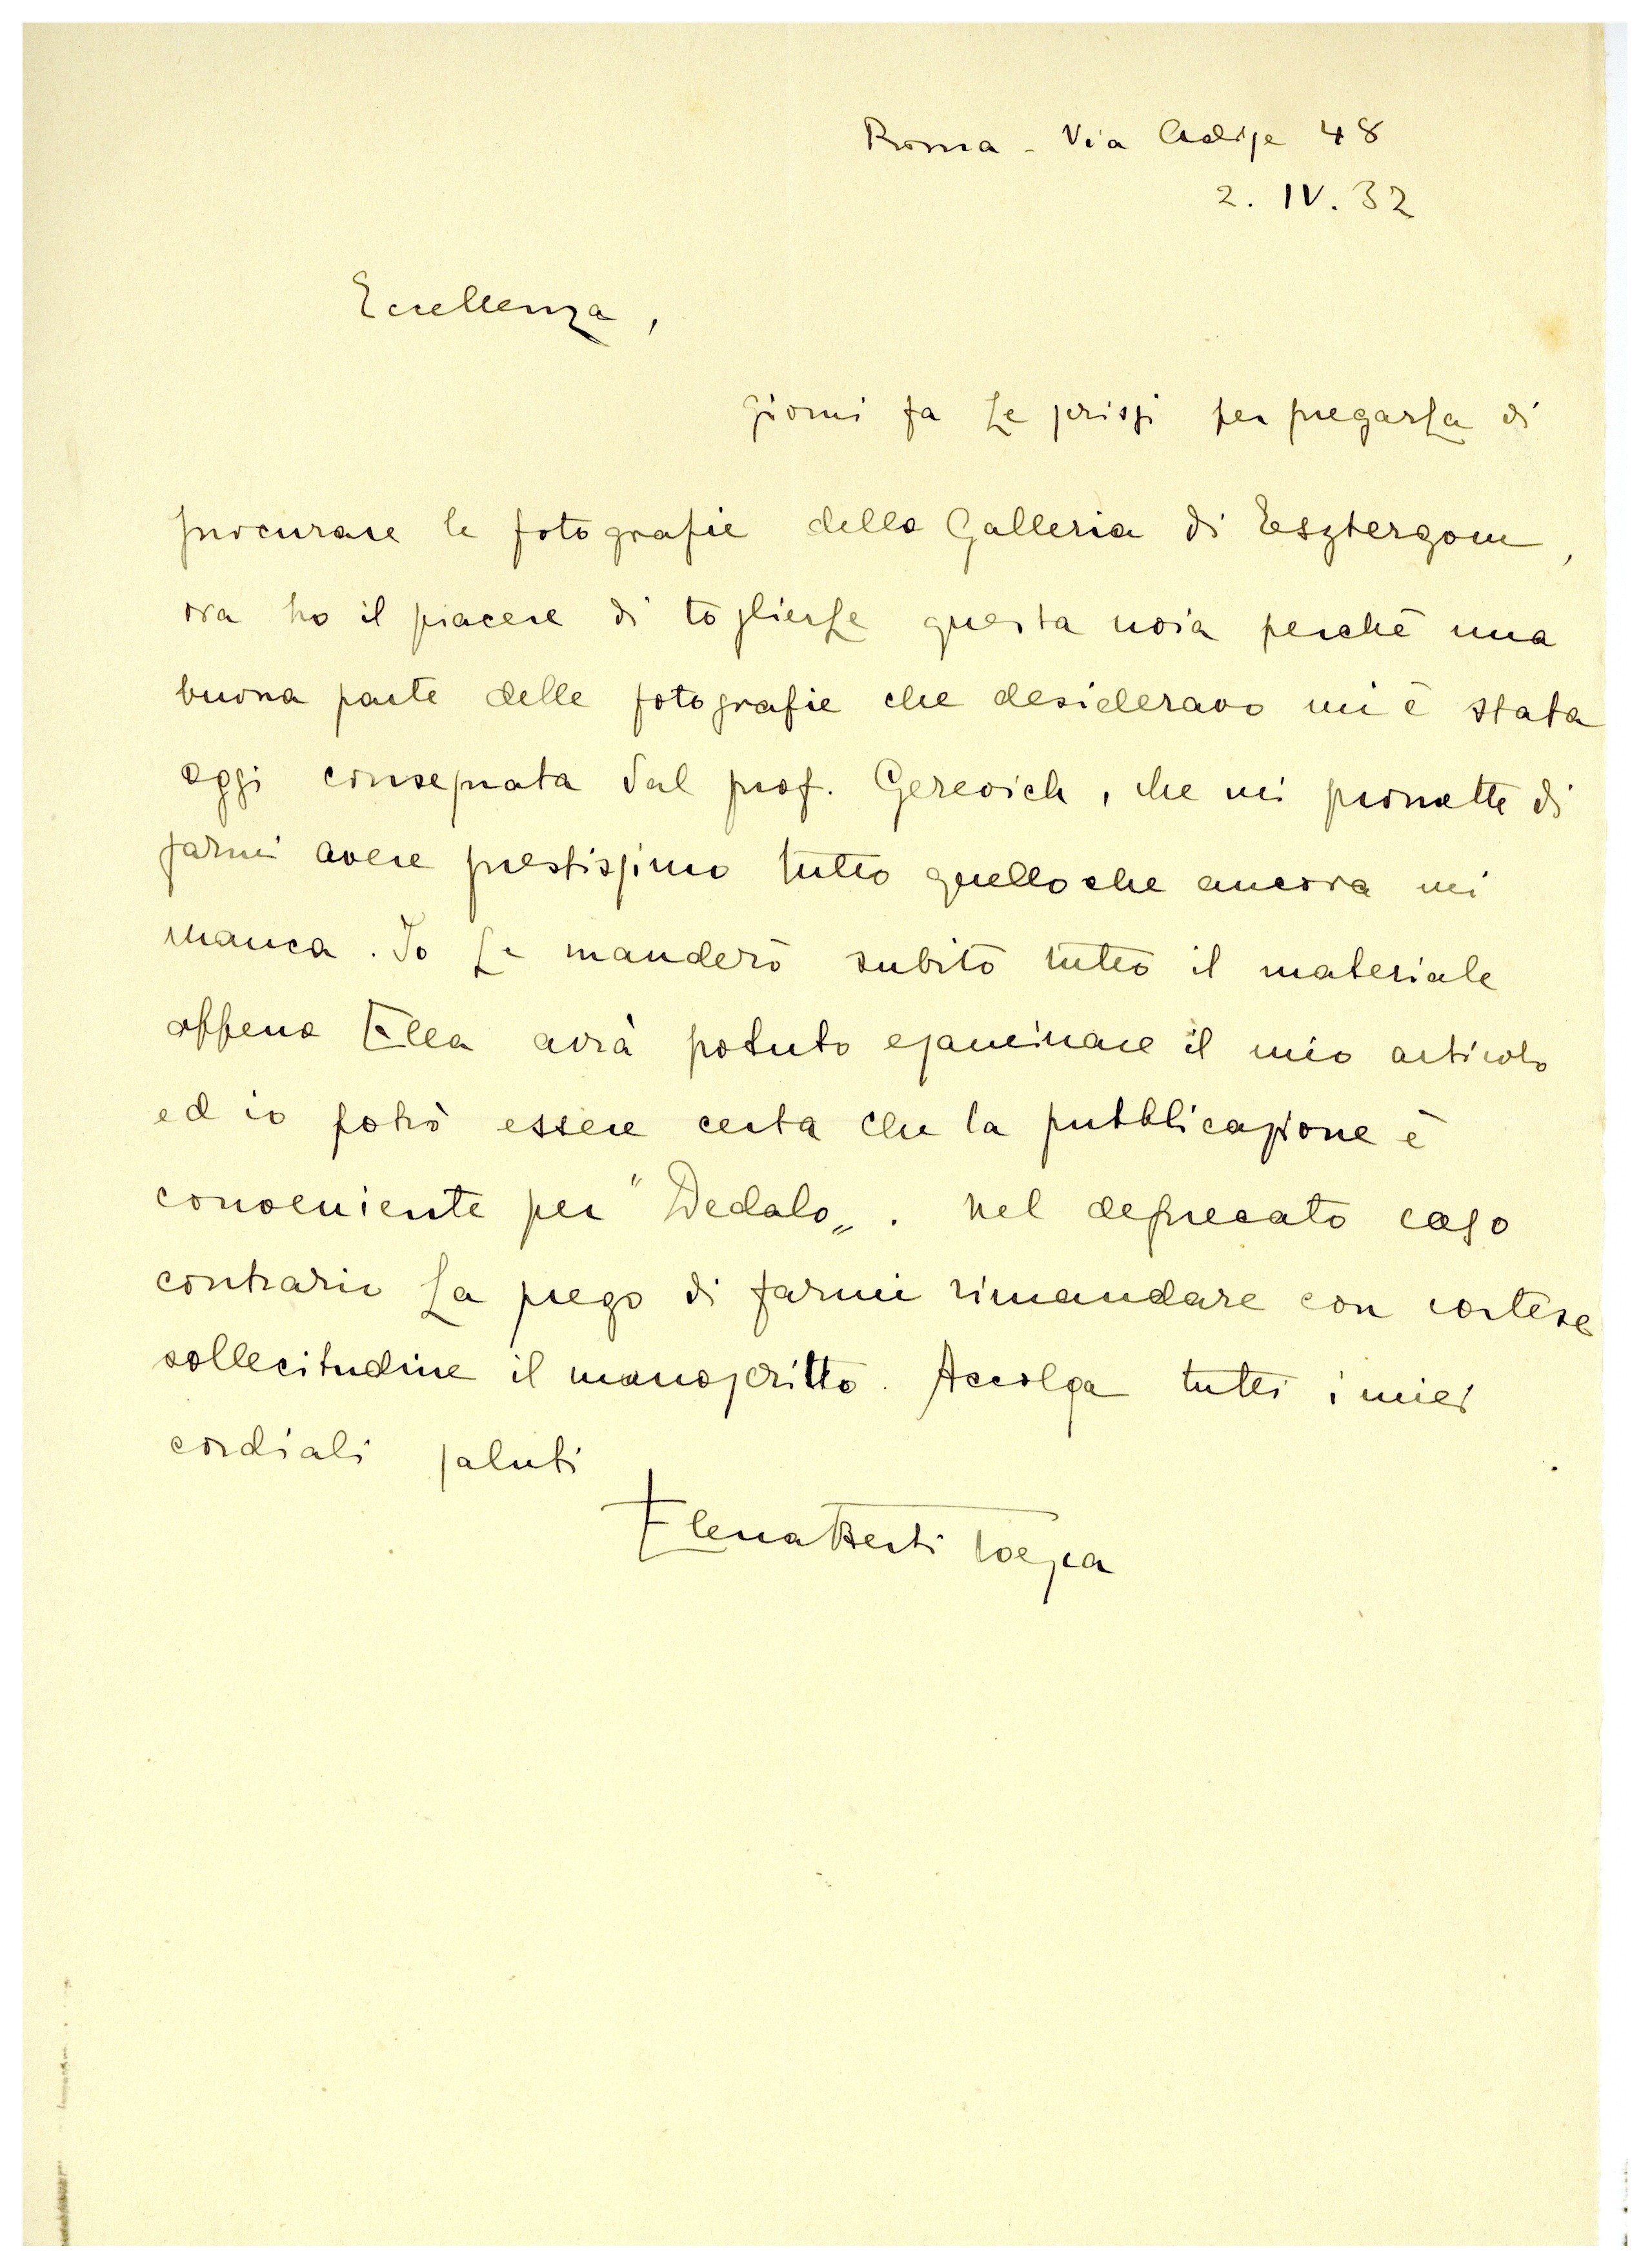 Roma - Via Adige 48
2. IV. 32
Eccellenza,
giorni fa Le scrissi per pregarLa di
procurare le fotografie della Galleria di Esztergom,
ora ho il piacere di toglierLe questa noia perchè una
buona parte delle fotografie che desideravo mi è stata
oggi consegnata dal prof. Gerevich, che mi promette di
farmi avere prestissimo tutto quello che ancora mi
manca. Io Le manderò subito tutto il materiale
appena Ella avrà potuto esaminare il mio articolo
ed io potrò essere certa che la pubblicazione è
conveniente per "Dedalo„. Nel deprecato caso
contrario La prego di farmi rimandare con cortese
sollecitudine il manoscritto. Accolga tutti i miei
cordiali saluti
Elena Berti Toesca